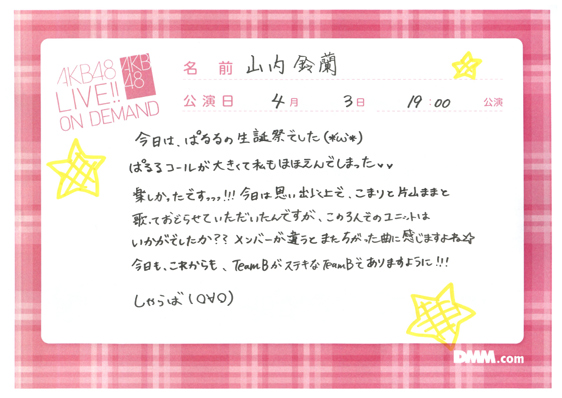 AKB48
LIVE!!
ON DEMAND
AKB
48
名 前 山内鈴蘭
公演日 4月 3日 19:00 公演
今日は、ぱるるの生誕祭でした(*'ω'*)
ぱるるコールが大きくて私もほほえんでしまった♥♥
楽しかったですっっっ!!! 今日は思い出以上で、こまりと片山ままと
歌っておどらせていただいたんですが、この3人でのユニットは
いかがでしたか?? メンバーが違うとまたちがった曲に感じますよね☆
今日も、これからも、TeamBがステキなTeamBでありますように!!!
しゃらば(OVO)
DMM.com